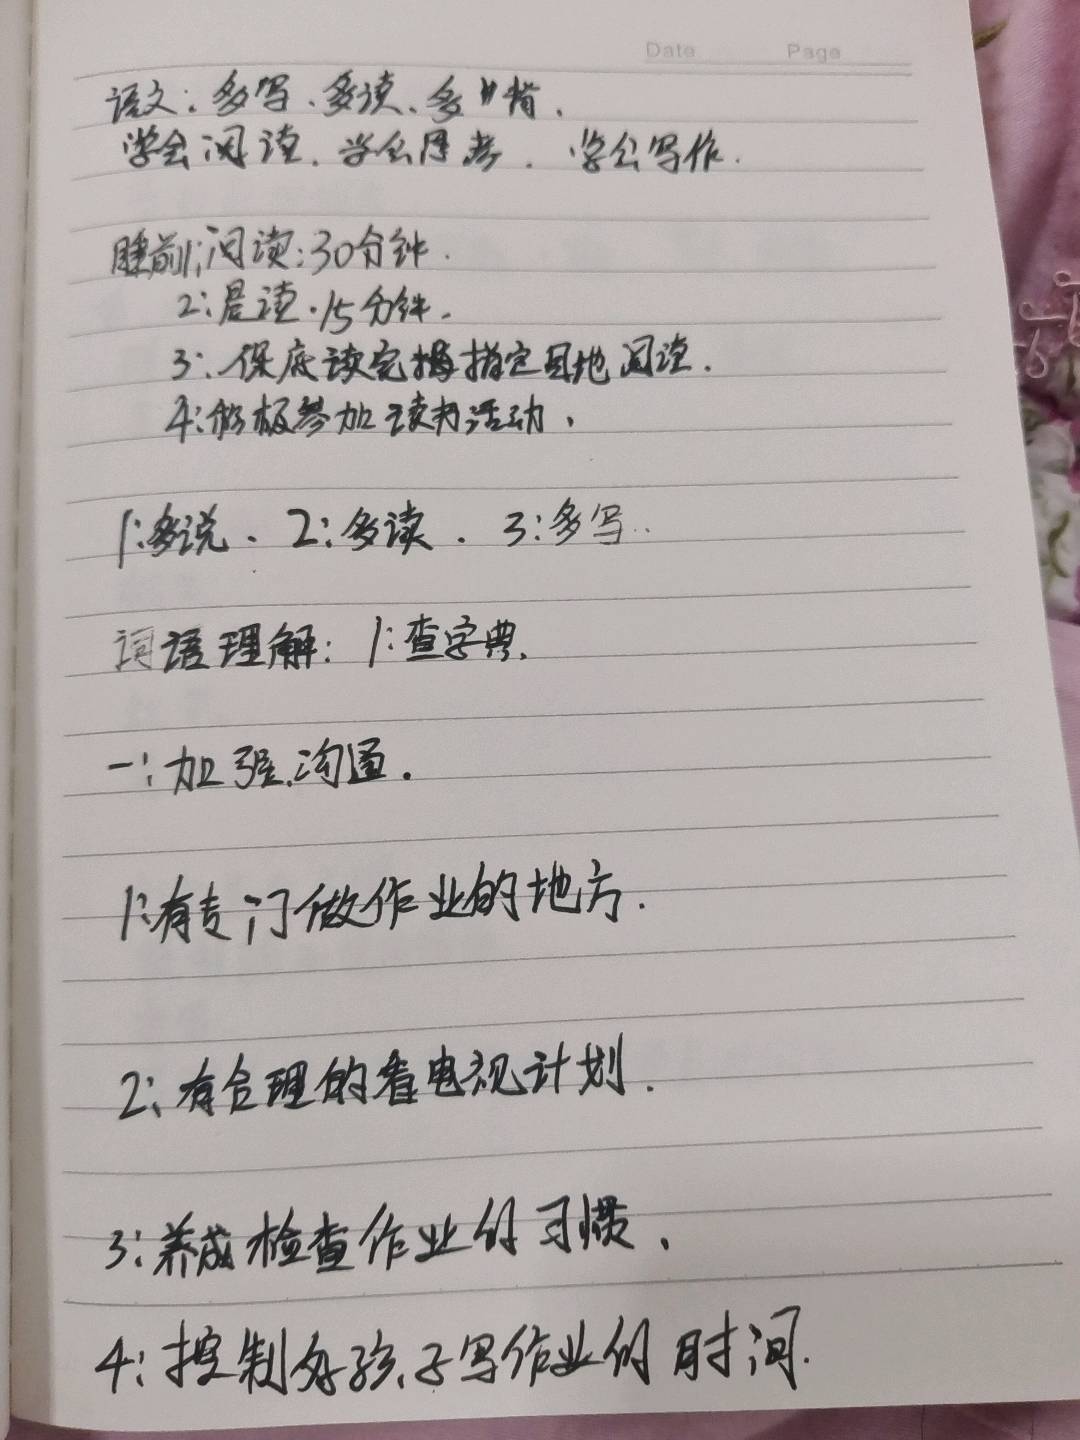 Date Page
语文：多写、多读、多背．
学会阅读．学会思考．学会写作．
睡前；阅读：30分钟．
2：晨读．15分钟．
3：保底读完指定目地阅读．
4：积极参加读书活动．
1：多说．2：多读．3：多写..
词语理解：1：查字典．
一：加强沟通．
1：有专门做作业的地方．
2：有合理的看电视计划．
3：养成检查作业的习惯．
4：控制好孩子写作业的时间．